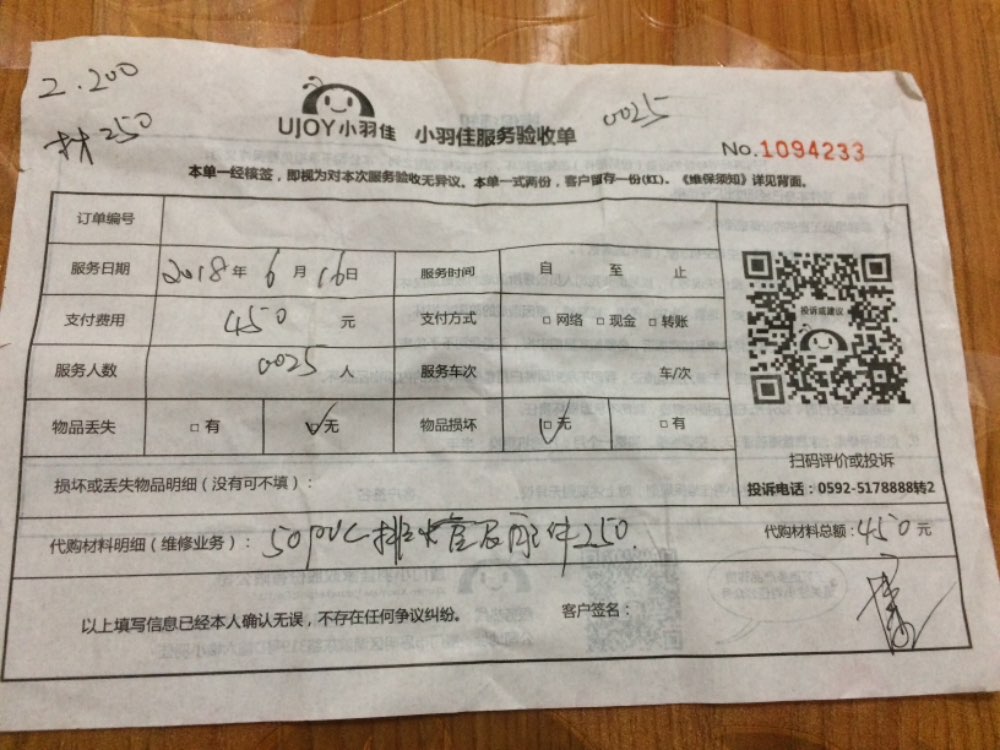 2.200
材250
UJOY小羽佳 小羽佳服务验收单
0025
No.1094233
本单一经核签，即视为对本次服务验收无异议。本单一式两份，客户留存一份(红)。《维保须知》详见背面。
订单编号
服务日期 2018年 6月 16日 服务时间 自 至 止
支付费用 450 元 支付方式 □网络 □现金 □转账
服务人数 0025 人 服务车次 车/次
物品丢失 □有 □无 物品损坏 □无 □有
投诉或建议
扫码评价或投诉
投诉电话：0592-5178888转2
损坏或丢失物品明细（没有可不填）：
代购材料明细（维修业务）：50pvc排水管及配件250. 代购材料总额：450元
以上填写信息已经本人确认无误，不存在任何争议纠纷。 客户签名：